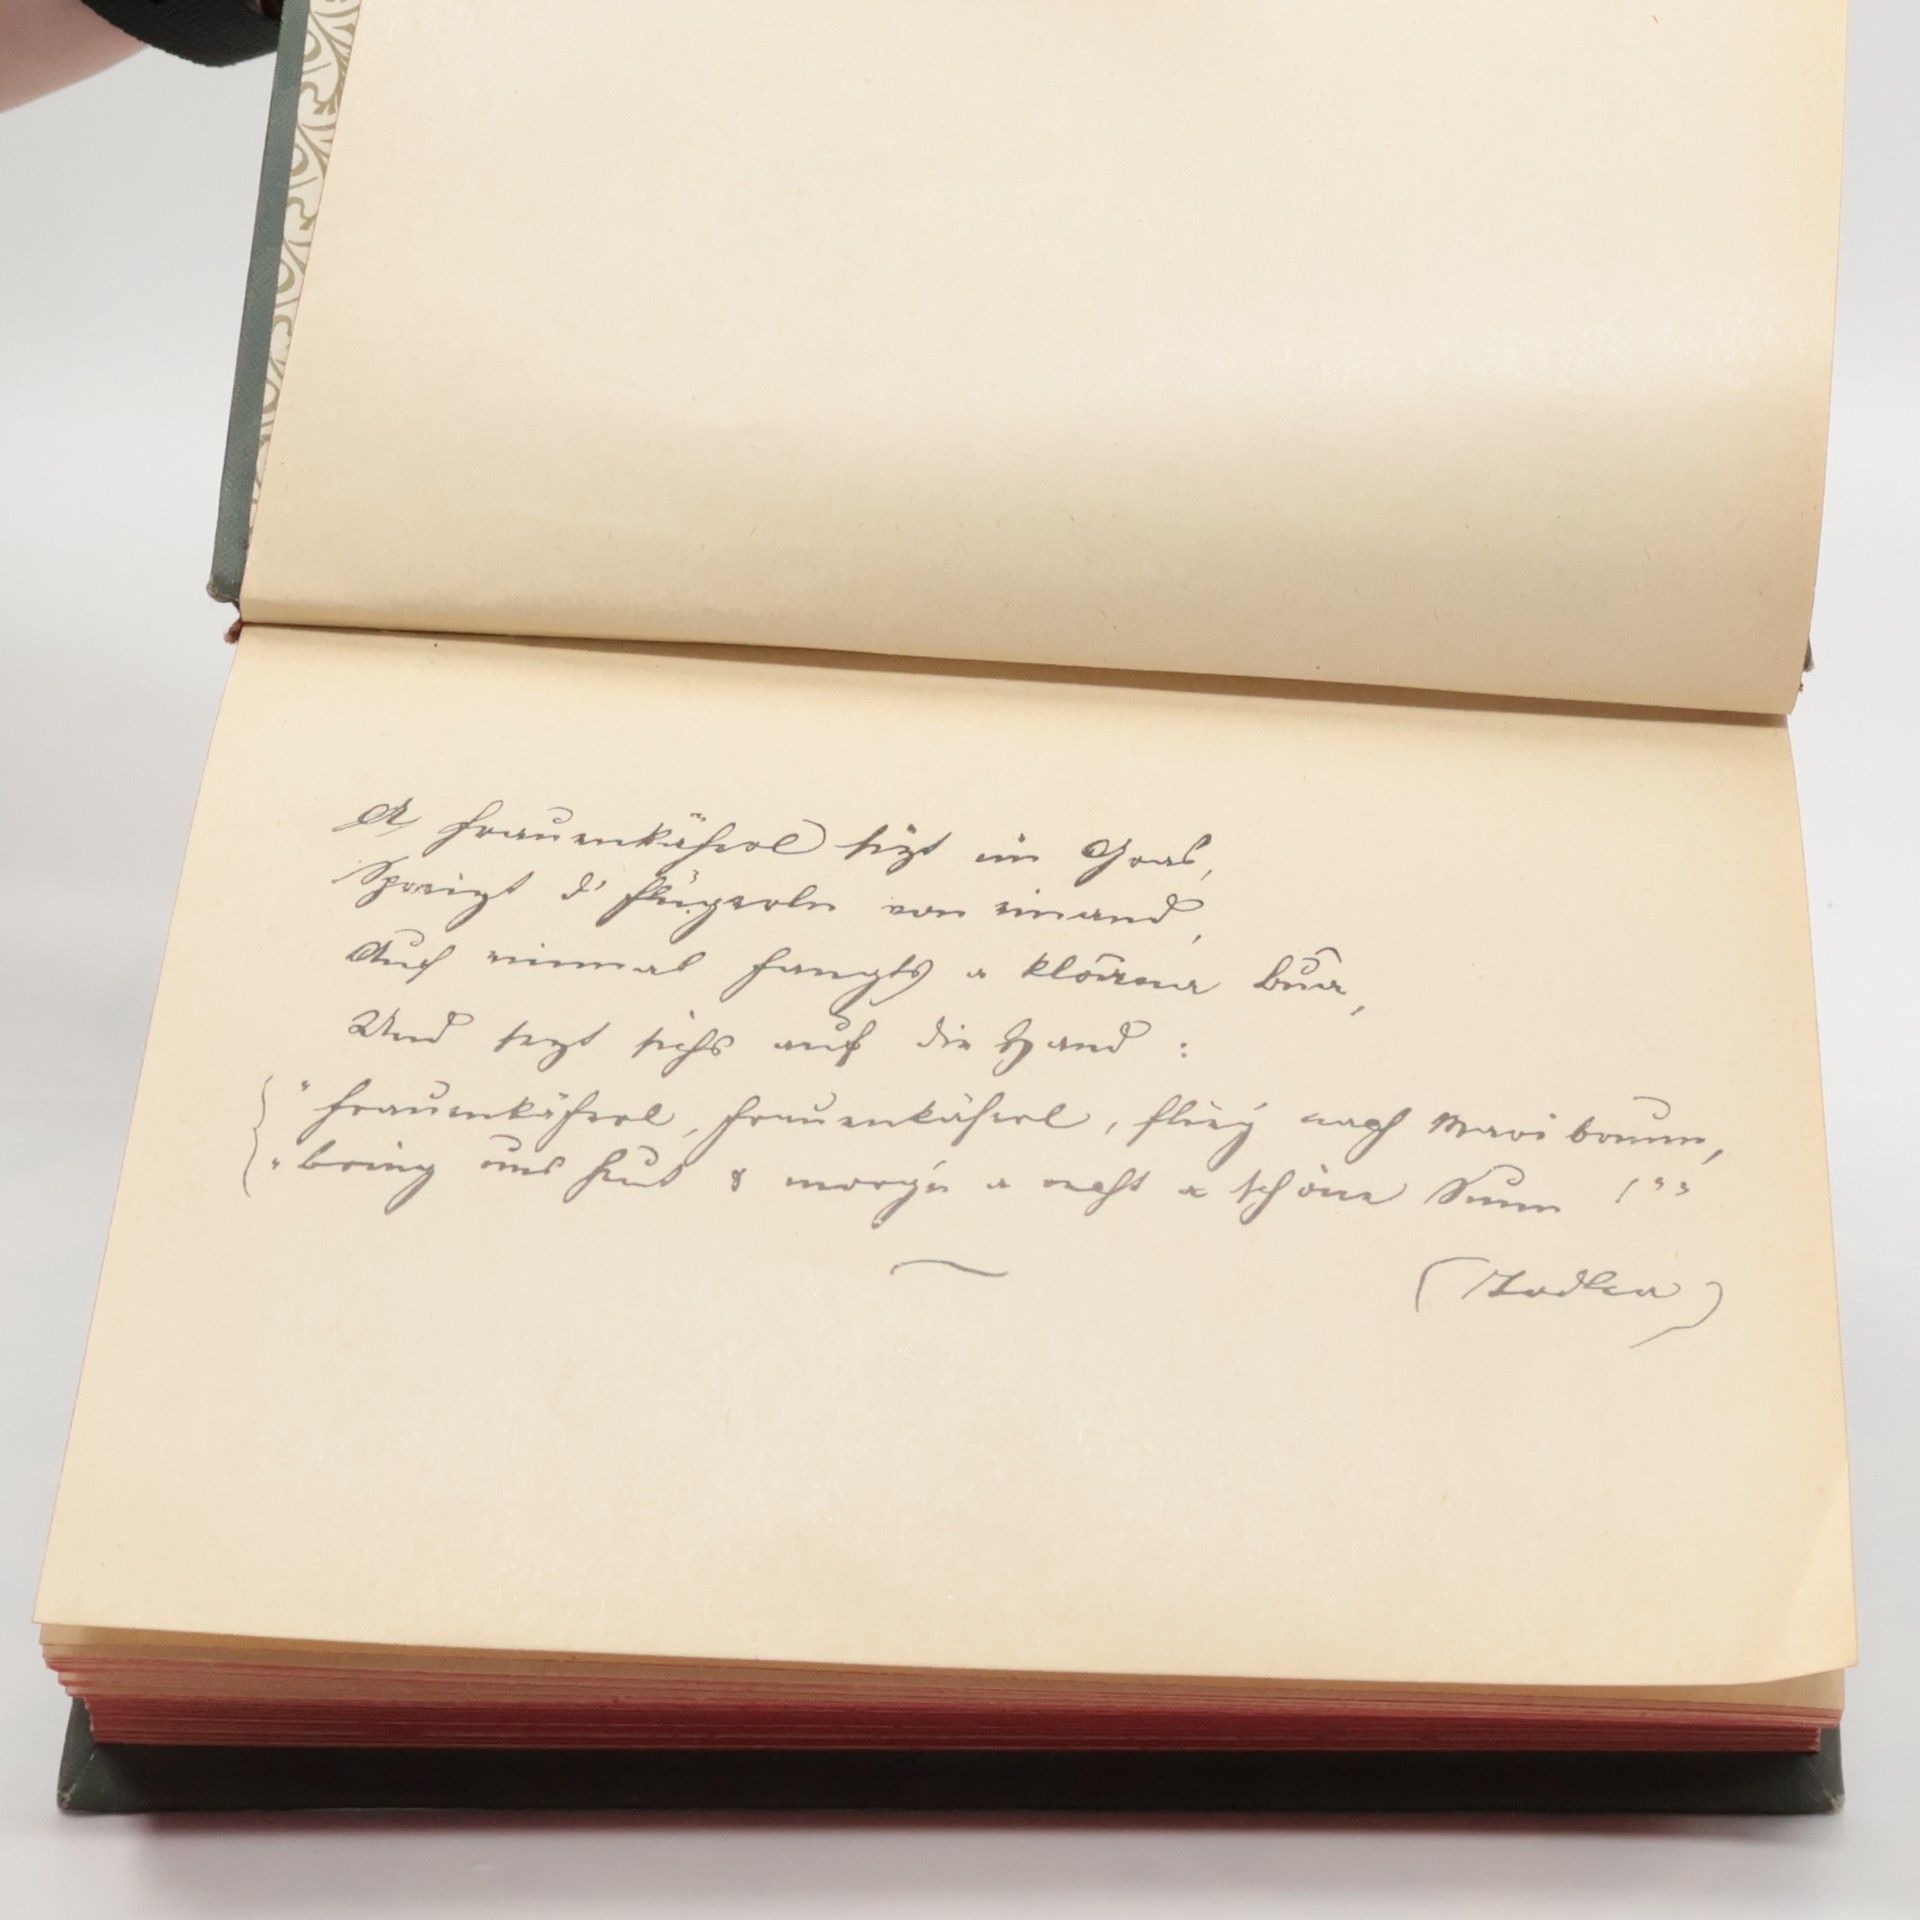 A Frauenkäferl sizt im Gras,
Spreizt d' Flügerln von einand,
Auf einmal fangts a kloana Bua,
Und sezt sichs auf die Hand :
"Frauenkäferl, Frauenkäferl, flieg nach Maribrunn,
"bring uns heut & morg'n a recht a schöne Sunn !""